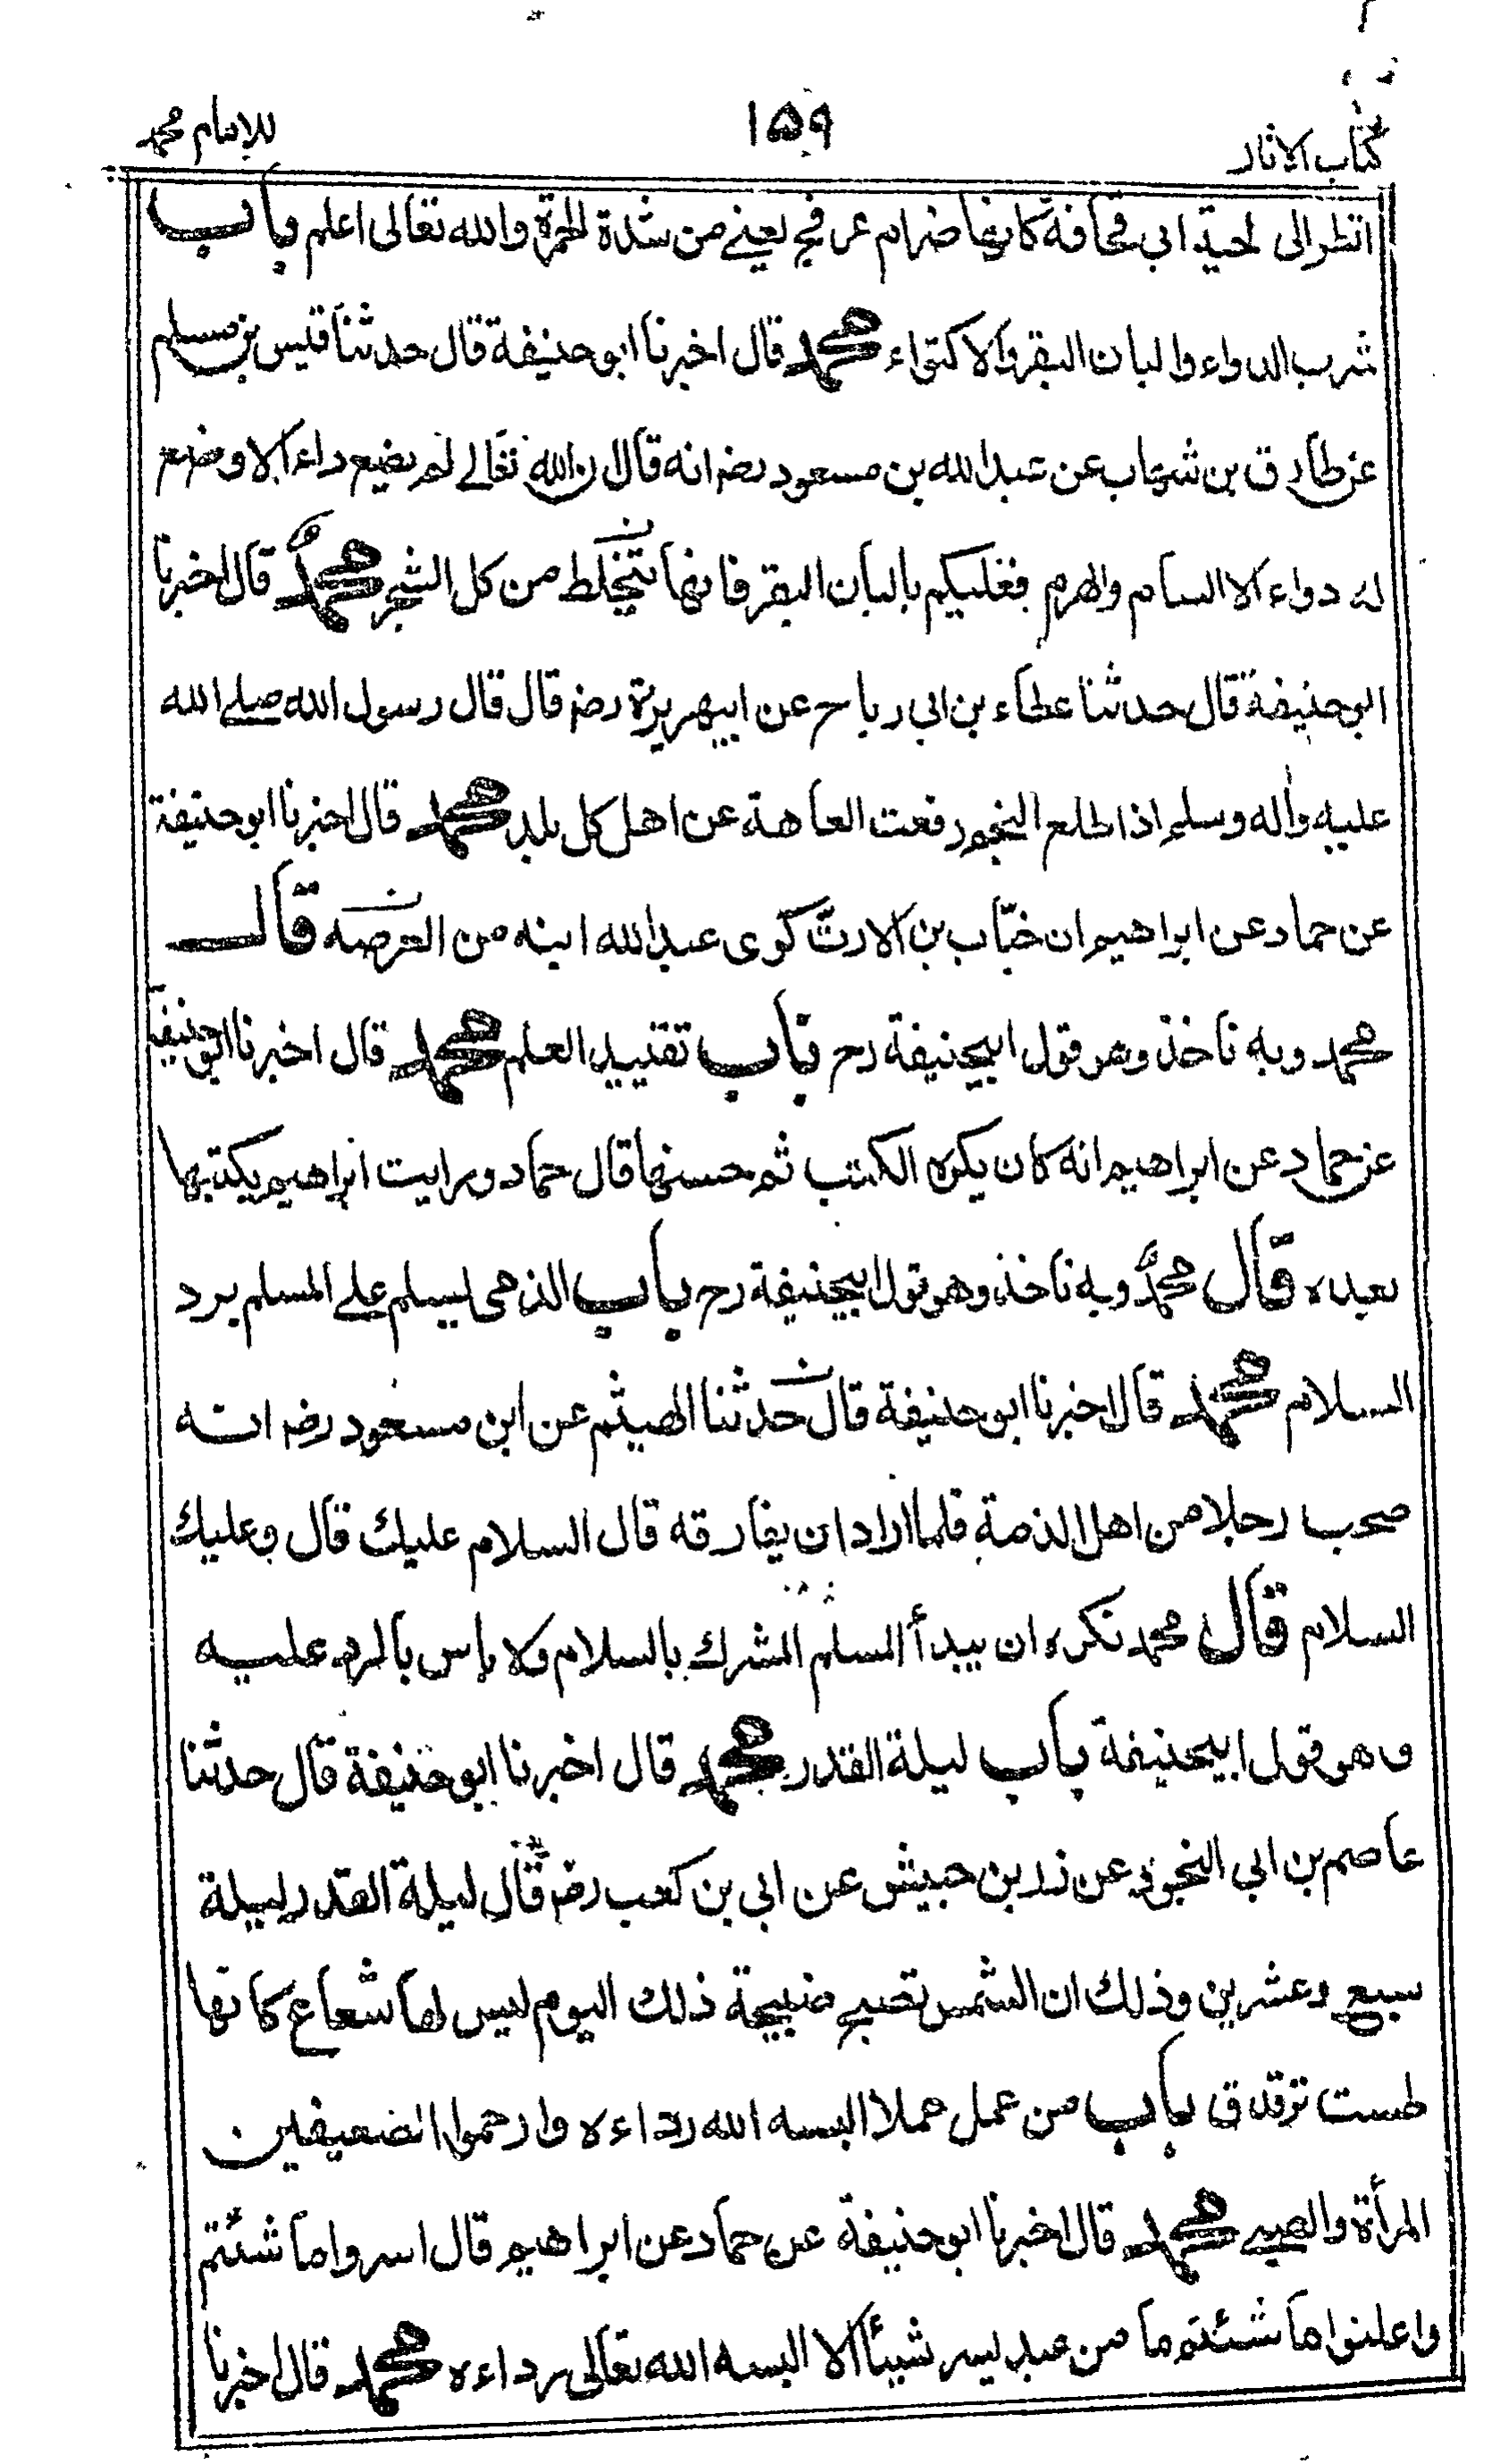 كتاب الاثار ١٥٩ للامام محمد
انظر الى لحية ابى قحافة كانها ضرام عرفج يعنے من شدة الحمرة والله تعالى اعلم باب
شرب الدواء والبان البقر والاكتواء محمد قال اخبرنا ابو حنيفة قال حدثنا قيس بن مسلم
عن طارق بن شهاب عن عبد الله بن مسعود رضـ انه قال ان الله تعالے لم يضع داء الا وضع
له دواء الا السام والهرم فعليكم بالبان البقر فانها تخلط من كل الشجر محمد قال اخبرنا
ابو حنيفة قال حدثنا عطاء بن ابى رباح عن ابيهريرة رضـ قال قال رسول الله صلے الله
عليه واٰله وسلم اذا طلع النجم رفعت العاهة عن اهل كل بلد محمد قال اخبرنا ابو حنيفة
عن حماد عن ابراهيم ان خبّاب بن الارتّ كوى عبد الله ابنه من الفرصه قال
محمد وبه ناخذ وهو قول ابيحنيفة رحـ باب تقييد العلم محمد قال اخبرنا ابو حنيفة
عن حماد عن ابراهيم انه كان يكره الكتب ثم حسنها قال حماد ورايت ابراهيم يكتبها
بعده قال محمد وبه ناخذ وهو قول ابيحنيفة رحـ باب الذمى يسلم على المسلم يرد
السلام محمد قال اخبرنا ابو حنيفة قال حدثنا الهيثم عن ابن مسعود رضـ انه
صحب رجلا من اهل الذمة فلما اراد ان يفارقه قال السلام عليك قال وعليك
السلام قال محمد نكره ان يبدأ المسلم المشرك بالسلام ولا باس بالرد عليه
وهو قول ابيحنيفة باب ليلة القدر محمد قال اخبرنا ابو حنيفة قال حدثنا
عاصم بن ابي النجود عن زر بن حبيش عن ابي بن كعب رضـ قال ليلة القدر ليلة
سبع وعشرين وذلك ان الشمس تصبح صبيحة ذلك اليوم ليس لها شعاع كانها
طست ترقرق باب من عمل عملا البسه الله رداءه وارحموا الضعيفين
المرأة والصبے محمد قال اخبرنا ابو حنيفة عن حماد عن ابراهيم قال اسروا ما شئتم
واعلنوا ما شئتم ما من عبد يسر شيئا الا البسه الله تعالى رداءه محمد قال اخبرنا